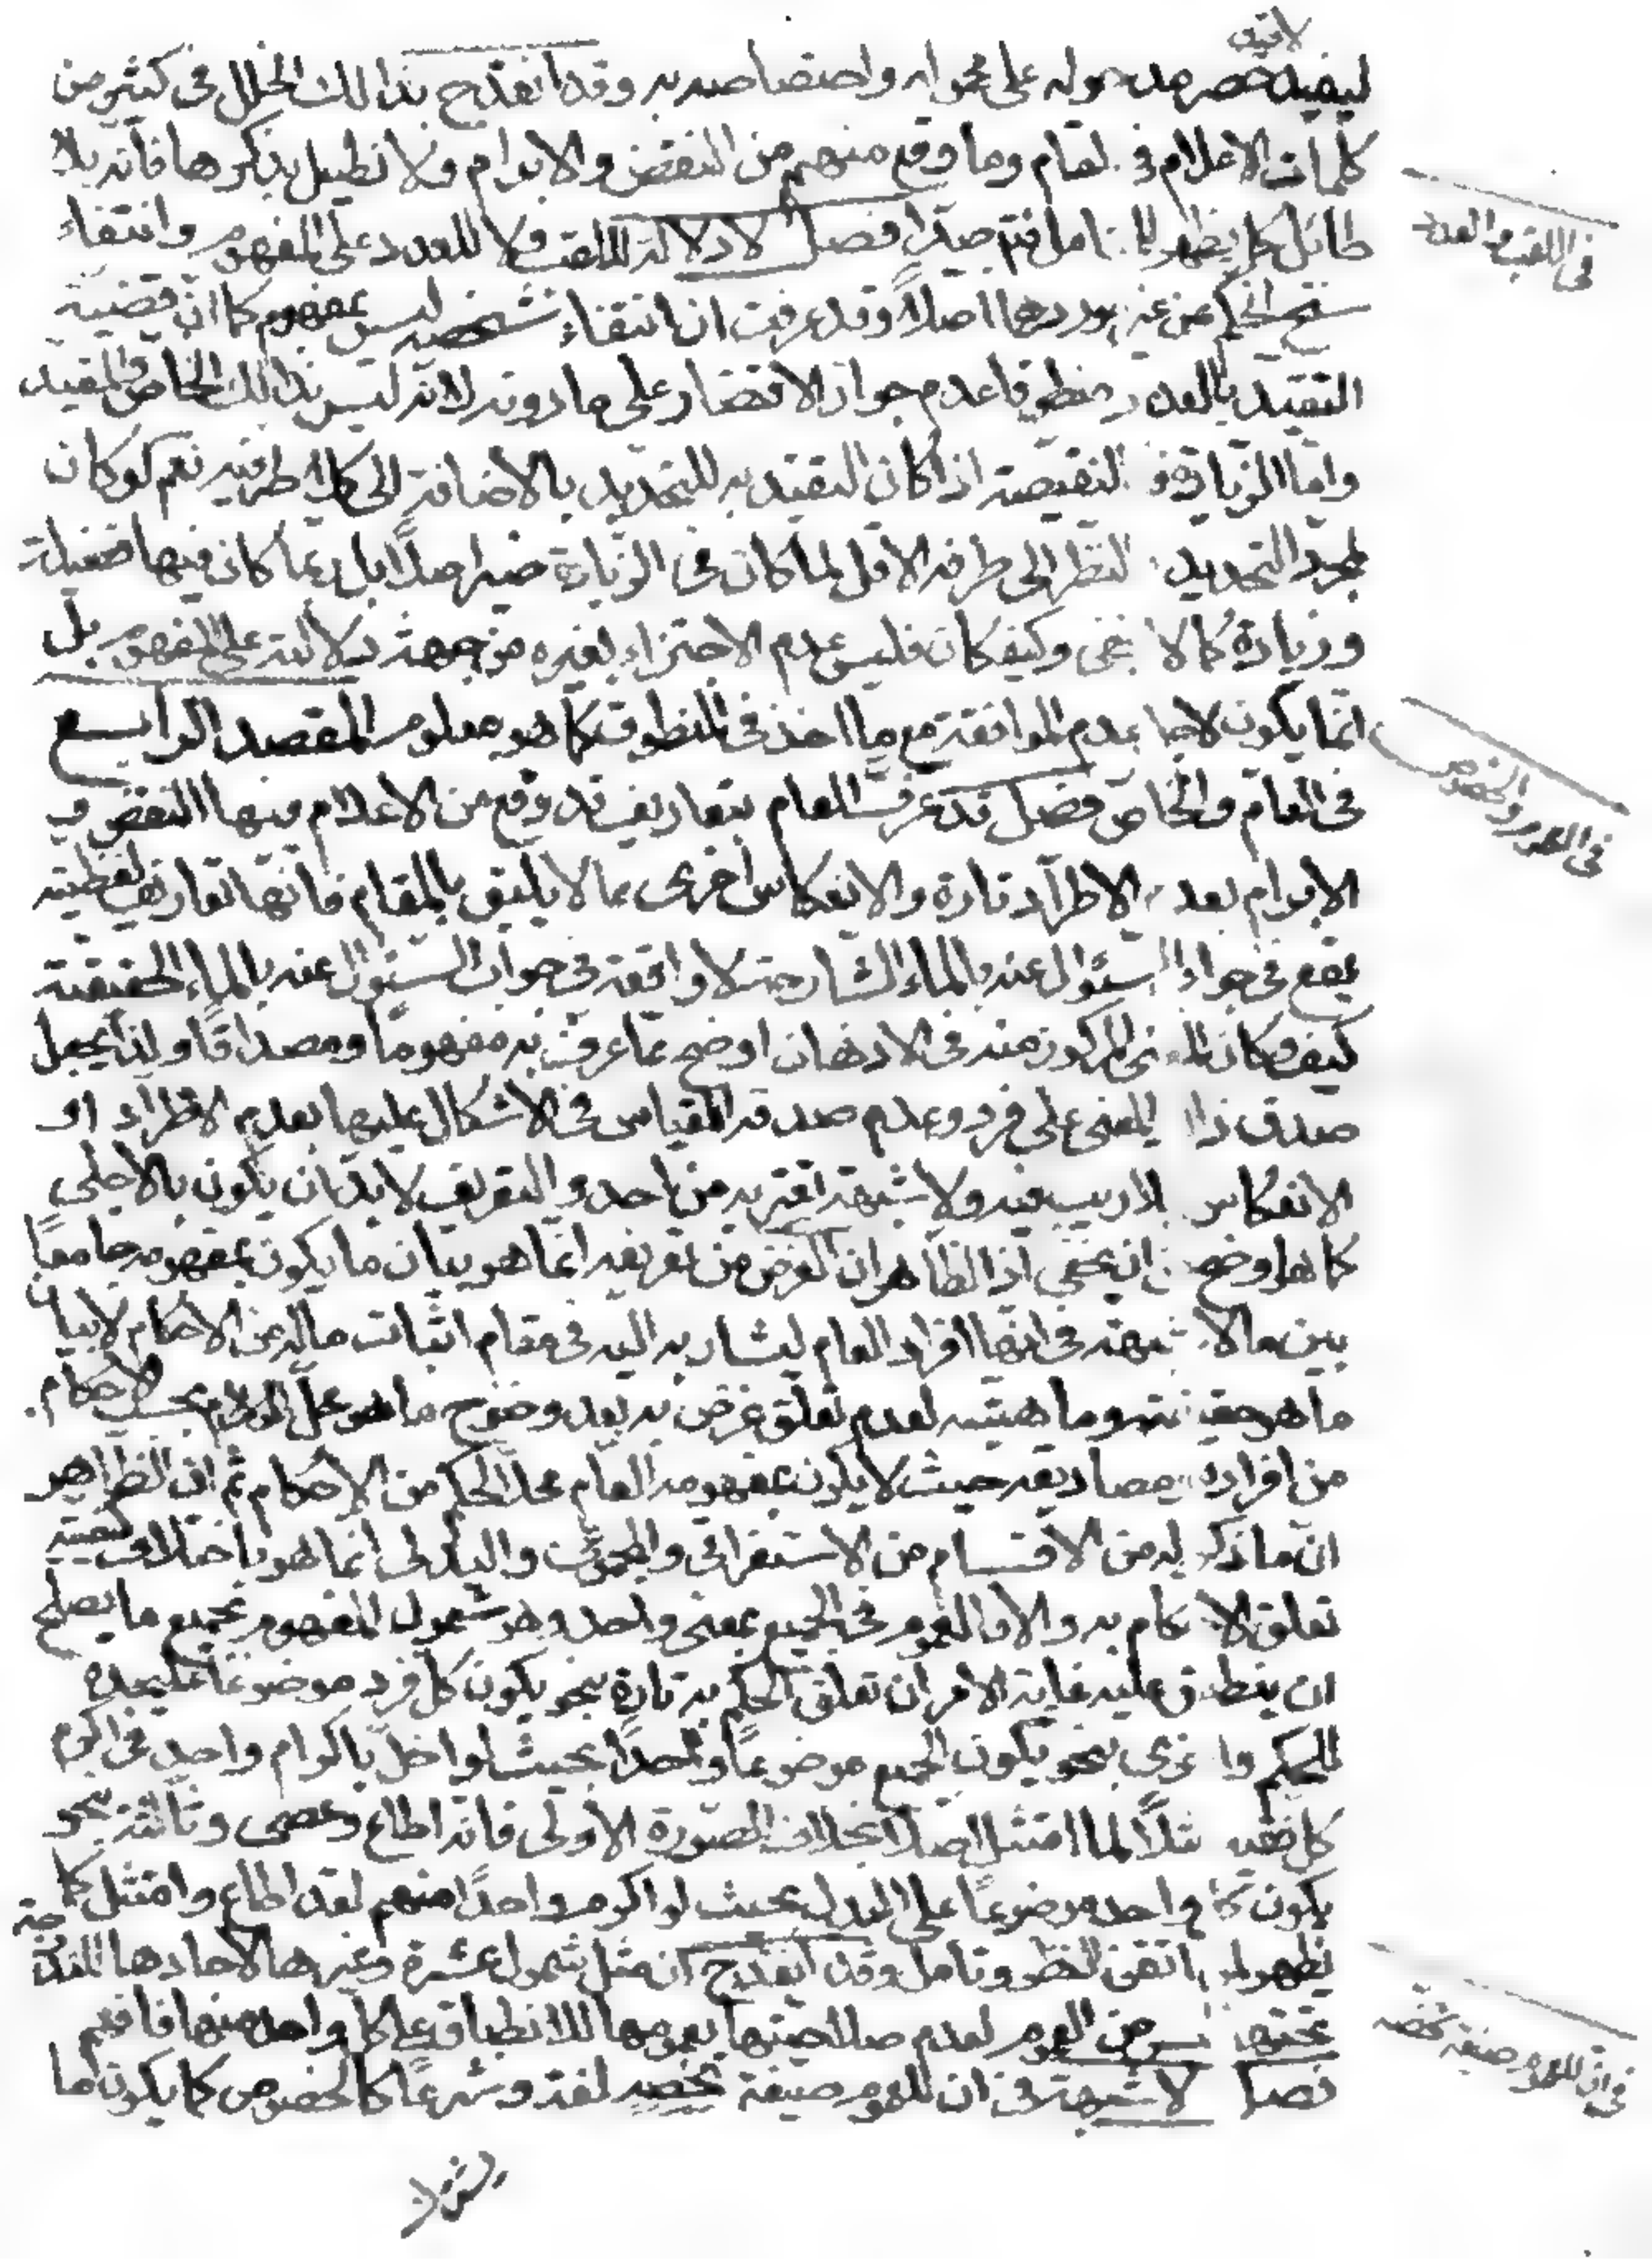 لافيد
ليفيد حصر مدخوله على محموله واختصاصه به وقد انقدح بذالك الخلل فى كثير من
كلمات الاعلام فى لمقام وما وقع منهم من النقض والابرام ولا نطيل بذكرها فانه بلا
طائل كما يظهر للمتامل فتدبر جيدا فصل لا دلالة للقب ولا للعدد على المفهوم وانتفاء
سنخ الحكم عن غير موردهما اصلا وقد عرفت ان انتفاء شخصه ليس بمفهوم كما ان قضية
التقييد بالعدد منطوقا عدم جواز الاقتصار على ما دونه لانه ليس بذالك الخاص والمقيد
واما الزيادة فكالنقيصة اذا كان التقييد به للتحديد بالاضافة الى كلا طرفيه نعم لو كان
لمجرد التحديد بالنظر الى طرفه الاقل لما كان فى الزيادة ضير اصلا بل ربما كان فيها فضيلة
وزيادة كما لا يخفى وكيف كان فليس عدم الاجتزاء بغيره من جهة دلالته على المفهوم بل
انما يكون لاجل عدم الموافقة مع ما اخذ فى المنطوق كما هو معلوم المقصد الرابع
فى العام والخاص فصل قد عرف العام بتعاريف قد وقع من الاعلام فيها النقض و
الابرام بعدم الاطراد تارة والانعكاس اخرى بما لا يليق بالمقام فانها تعاريف لفظية
يقع فى جواب السئوال عنه بالماء الشارحة لا واقعة فى جواب السئوال عنه بالماء الحقيقية
كيف وكان المعنى المركوز منه فى الاذهان اوضح مما عرف به مفهوما ومصداقا ولذا يجعل
صدق ذا المعنى على فرد وعدم صدقه المقياس فى الاشكال عليها بعدم الاطراد او
الانعكاس بلا ريب فيه ولا شبهة تعتريه من احد والتعريف لا بد ان يكون بالاجلى
كما هو اوضح من ان يخفى اذا الظاهر ان الغرض من تعريفه انما هو بيان ما يكون بمفهومه جامعا
بين ما لا شبهة فى انها افراد العام ليشار به اليه فى مقام اثبات ما له من الاحكام لا بيان
ما هو حقيقته وماهيته لعدم تعلق غرض به بعد وضوح ما هو محل الكلام بحسب الاحكام
من افراده ومصاديقه حيث لا يكون بمفهومه العام محلا لحكم من الاحكام ثم ان الظاهر
ان ما ذكر له من الاقسام من الاستغراقى والمجموعى والبدلى انما هو باختلاف كيفية
تعلق الاحكام به والا فالعموم فى الجميع بمعنى واحد وهو شمول المفهوم لجميع ما يصلح
ان ينطبق عليه غاية الامر ان تعلق الحكم به تارة بنحو يكون كل فرد موضوعا عليحدة
للحكم واخرى بنحو يكون الجميع موضوعا واحدا بحيث لو اخل باكرام واحد فى اكرم
كل فقيه مثلا لما امتثل اصلا بخلاف الصورة الاولى فانه اطاع وعصى وثالثة بنحو
يكون كل واحد موضوعا على البدل بحيث لو اكرم واحدا منهم لقد اطاع وامتثل كما
يظهر لمن اتقن النظر وتامل وقد انقدح ان مثل شمول عشرة وغيرها لاحادها المندرجة
تحتها ليس من العموم لعدم صلاحيتها بعمومها للانطباق على كل واحد منها فافهم
فصل لا شبهة فى ان للعموم صيغة تخصه لغة وشرعا كالخصوص كما يكون ما
فى اللقب والعدد
فى العموم والخصوص
فى ان للعموم صيغة تخصه